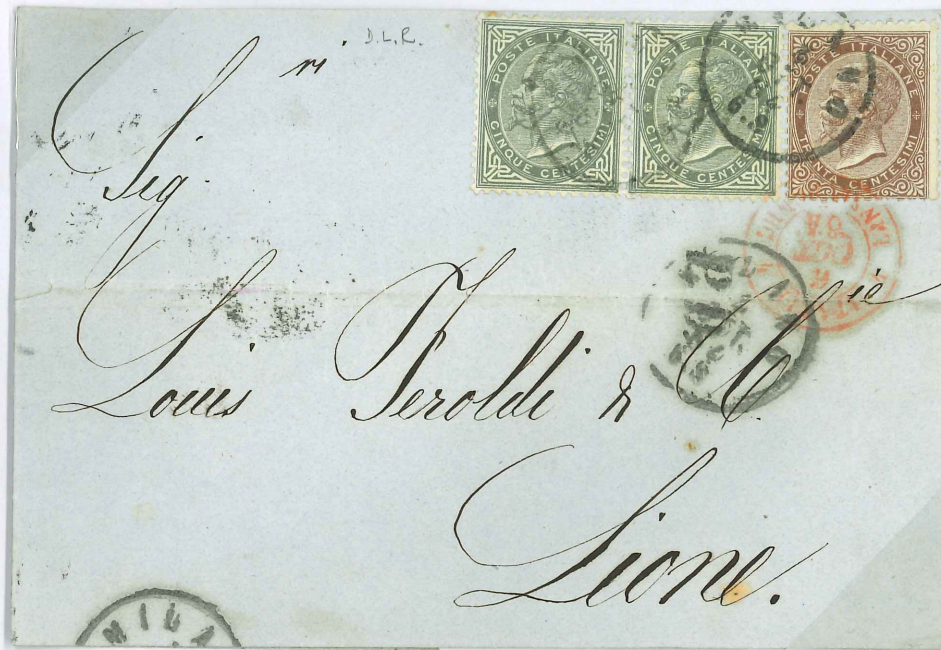 D.L.R.
POSTE ITALIANE
CINQUE CENTESIMI
POSTE ITALIANE
CINQUE CENTESIMI
POSTE ITALIANE
TRENTA CENTESIMI
Sig.ri
Louis Feroldi & C.ie
Lione.
MILA